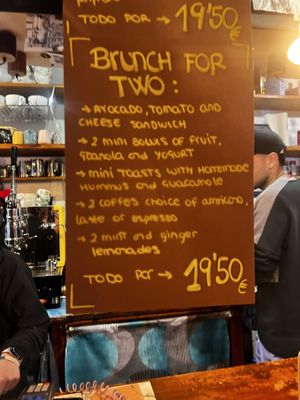 TODO POR → 19'50 €
BRUNCH FOR
TWO :
→ AVOCADO, TOMATO AND
CHEESE SANDWICH
→ 2 mini BOWLS OF FRUIT,
GRANOLA and YOGURT
→ mini TOASTS WITH HOMEMADE
HUMMUS and GUACAMOLE
→ 2 COFFES CHOICE OF AMERICANO,
LATTE OR ESPRESSO
→ 2 mint and GINGER
lemonades
TODO POR → 19'50 €